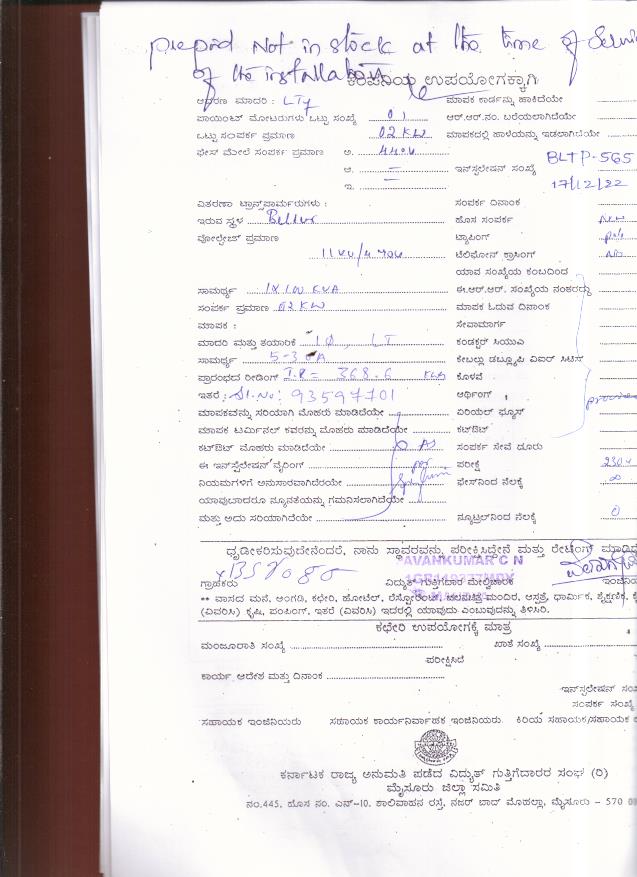 prepaid Not in stock at the time of
of the installation
ಕಂಪನಿಯ ಉಪಯೋಗಕ್ಕಾಗಿ
ಆಧರಣ ಮಾದರಿ : LT7 ಮಾಪಕ ಕಾರ್ಡನ್ನು ಹಾಕಿದೆಯೇ
ಪಾಯಿಂಟ್ ಮೋಟರುಗಳು ಒಟ್ಟು ಸಂಖ್ಯೆ 01 ಆರ್.ಆರ್.ನಂ. ಬರೆಯಲಾಗಿದೆಯೇ
ಒಟ್ಟು ಸಂಪರ್ಕ ಪ್ರಮಾಣ 02 KW ಮಾಪಕದಲ್ಲಿ ಹಾಳೆಯನ್ನು ಇಡಲಾಗಿದೆಯೇ
ಫೇಸ್ ಮೇಲೆ ಸಂಪರ್ಕ ಪ್ರಮಾಣ ಅ. BLTP-565
ಆ. = ಇನ್‌ಸ್ಟಲೇಷನ್ ಸಂಖ್ಯೆ
ಇ. 17/12/22
ವಿತರಣಾ ಟ್ರಾನ್ಸ್‌ಫಾರ್ಮರುಗಳು : ಸಂಪರ್ಕ ದಿನಾಂಕ
ಇರುವ ಸ್ಥಳ Bellur ಹೊಸ ಸಂಪರ್ಕ New
ವೋಲ್ಟೇಜ್ ಪ್ರಮಾಣ ಟ್ಯಾಪಿಂಗ್
ಟೆಲಿಫೋನ್ ಕ್ರಾಸಿಂಗ್ No
ಯಾವ ಸಂಖ್ಯೆಯ ಕಂಬದಿಂದ
ಸಾಮರ್ಥ್ಯ 1X100 KVA ಈ.ಆರ್.ಆರ್. ಸಂಖ್ಯೆಯ ನಂತರದ್ದು
ಸಂಪರ್ಕ ಪ್ರಮಾಣ 02 KW ಮಾಪಕ ಓದುವ ದಿನಾಂಕ
ಮಾಪಕ : ಸೇವಾಮಾರ್ಗ
ಮಾದರಿ ಮತ್ತು ತಯಾರಿಕೆ 1Ø, LT ಕಂಡಕ್ಟರ್ ಸಿಯುಎ
ಸಾಮರ್ಥ್ಯ 5-30A ಕೇಬಲ್ಲು ಡಬ್ಲ್ಯೂಪಿ ವಿಐರ್ ಸಿಟಿಸ್
ಪ್ರಾರಂಭದ ರೀಡಿಂಗ್ I.R = 368.6 ಕೊಳವೆ
ಇತರೆ : Sl.No: 93597701 ಆರ್ಥಿಂಗ್
ಮಾಪಕವನ್ನು ಸರಿಯಾಗಿ ಮೊಹರು ಮಾಡಿದೆಯೇ ಏರಿಯಲ್ ಫ್ಯೂಸ್
ಮಾಪಕ ಟರ್ಮಿನಲ್ ಕವರನ್ನು ಮೊಹರು ಮಾಡಿದೆಯೇ ಕಟ್‌ಔಟ್
ಕಟ್‌ಔಟ್ ಮೊಹರು ಮಾಡಿದೆಯೇ ಸಂಪರ್ಕ ಸೇವೆ ದೂರು
ಈ ಇನ್‌ಸ್ಟಲೇಷನ್ ವೈರಿಂಗ್ ಪರೀಕ್ಷೆ 230v
ನಿಯಮಗಳಿಗೆ ಅನುಸಾರವಾಗಿದೆರಯೇ ಫೇಸ್‌ನಿಂದ ನೆಲಕ್ಕೆ ∞
ಯಾವುದಾದರೂ ನ್ಯೂನತೆಯನ್ನು ಗಮನಿಸಲಾಗಿದೆಯೇ
ಮತ್ತು ಅದು ಸರಿಯಾಗಿದೆಯೇ ನ್ಯೂಟ್ರಲ್‌ನಿಂದ ನೆಲಕ್ಕೆ 0
ದೃಢೀಕರಿಸುವುದೇನೆಂದರೆ, ನಾನು ಸ್ಥಾವರವನ್ನು ಪರೀಕ್ಷಿಸಿದ್ದೇನೆ ಮತ್ತು ರೇಟಿಂಗ್
AVANKUMAR C N
ಗ್ರಾಹಕರು ವಿದ್ಯುತ್ ಗುತ್ತಿಗೆದಾರ ಮೇಲ್ವಿಚಾರಕ
** ವಾಸದ ಮನೆ, ಅಂಗಡಿ, ಕಛೇರಿ, ಹೋಟೆಲ್, ರೆಸ್ಟೋರೆಂಟ್ ಚಲನಚಿತ್ರ ಮಂದಿರ, ಆಸ್ಪತ್ರೆ, ಧಾರ್ಮಿಕ, ಶೈಕ್ಷಣಿಕ,
(ವಿವರಿಸಿ) ಕೃಷಿ, ಪಂಪಿಂಗ್, ಇತರೆ (ವಿವರಿಸಿ) ಇದರಲ್ಲಿ ಯಾವುದು ಎಂಬುವುದನ್ನು ತಿಳಿಸಿರಿ.
ಕಛೇರಿ ಉಪಯೋಗಕ್ಕೆ ಮಾತ್ರ
ಮಂಜೂರಾತಿ ಸಂಖ್ಯೆ ಖಾತೆ ಸಂಖ್ಯೆ
ಪರೀಕ್ಷಿಸಿದೆ
ಕಾರ್ಯ ಆದೇಶ ಮತ್ತು ದಿನಾಂಕ
ಇನ್‌ಸ್ಟಲೇಷನ್
ಸಂಪರ್ಕ ಸಂಖ್ಯೆ
ಸಹಾಯಕ ಇಂಜಿನಿಯರು ಸಹಾಯಕ ಕಾರ್ಯನಿರ್ವಾಹಕ ಇಂಜಿನಿಯರು. ಕಿರಿಯ ಸಹಾಯಕ/ಸಹಾಯಕ
ಕರ್ನಾಟಕ ರಾಜ್ಯ ಅನುಮತಿ ಪಡೆದ ವಿದ್ಯುತ್ ಗುತ್ತಿಗೆದಾರರ ಸಂಘ (ರಿ)
ಮೈಸೂರು ಜಿಲ್ಲಾ ಸಮಿತಿ
ನಂ.445, ಹೊಸ ನಂ. ಎನ್-10. ಶಾಲಿವಾಹನ ರಸ್ತೆ, ನಜರ್ ಬಾದ್ ಮೊಹಲ್ಲಾ, ಮೈಸೂರು - 570